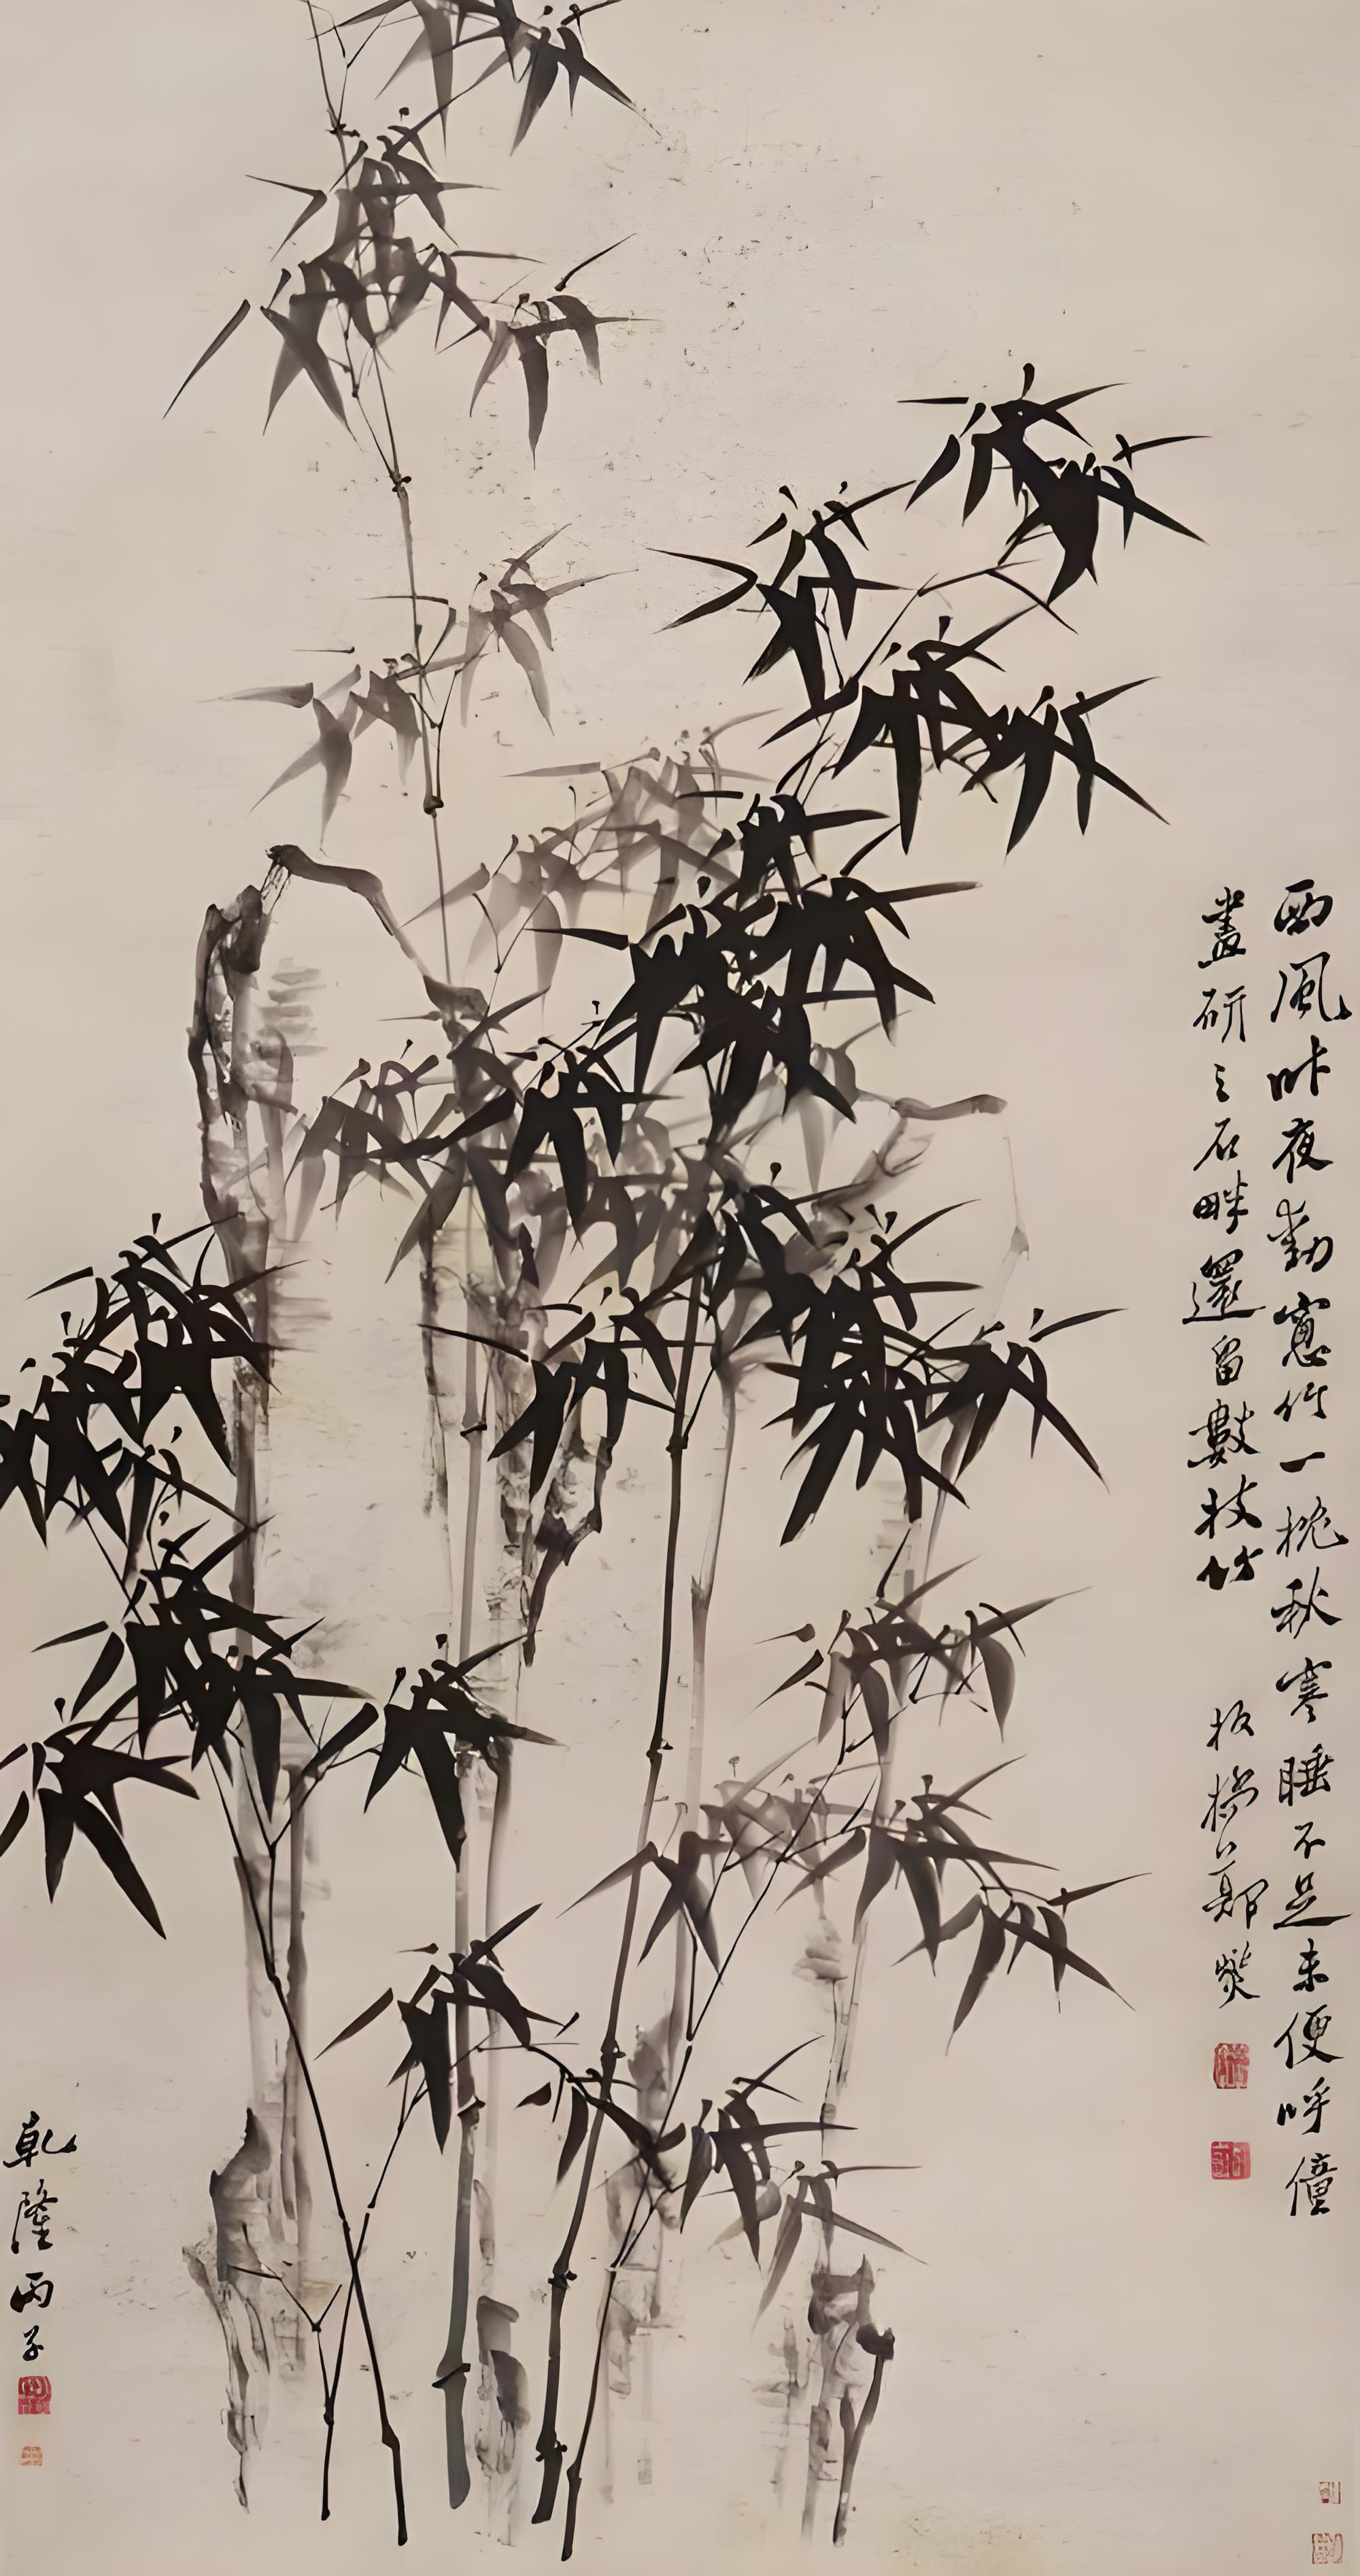 西風昨夜動窗竹一枕秋寒睡不足未便呼僮
畫研之石畔還留數枝竹
板橋鄭燮
乾隆丙子